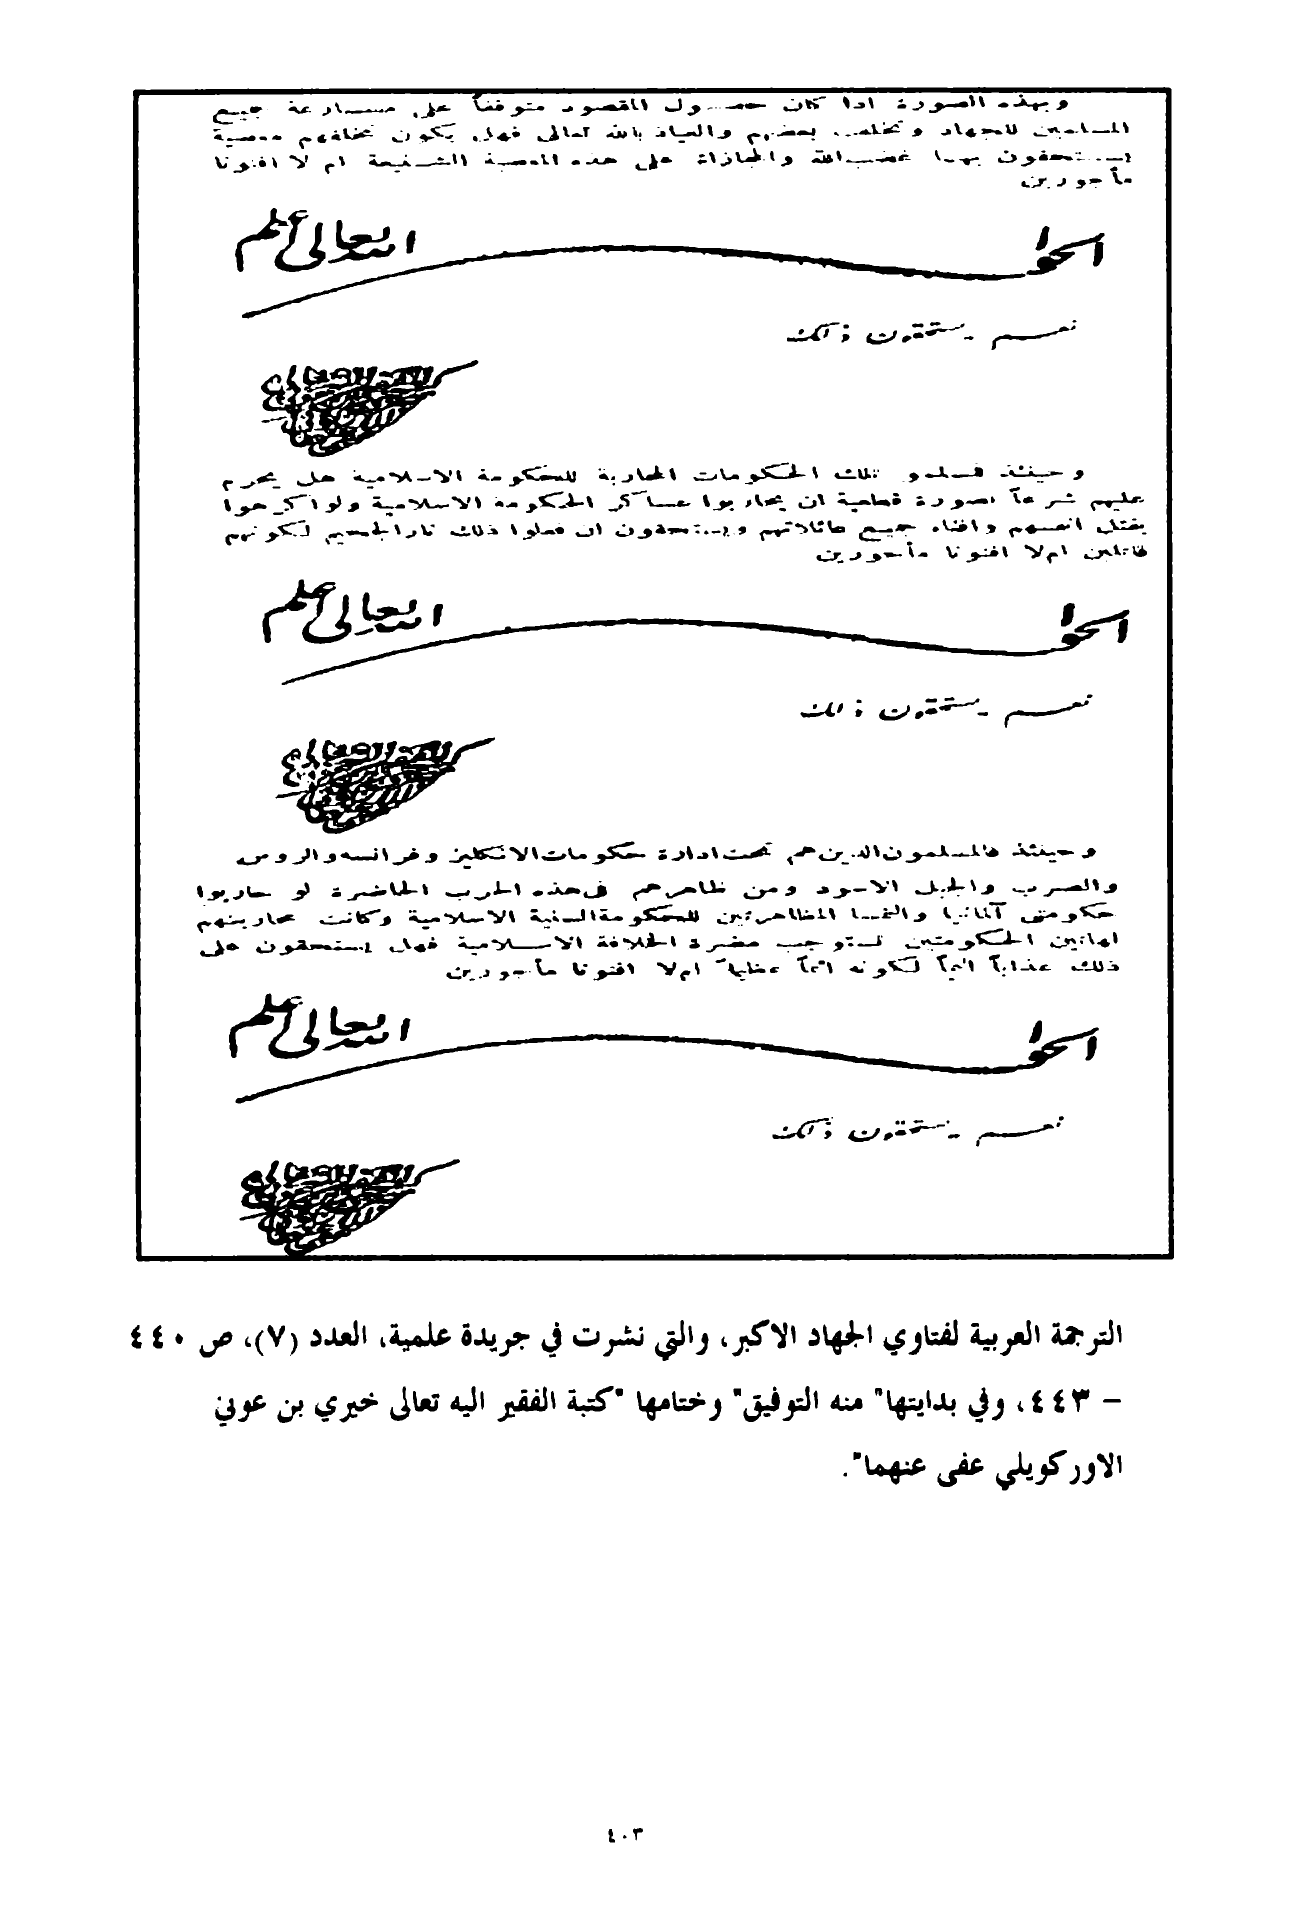 وبهذه الصورة اذا كان حصول المقصود متوقفاً على مسارعة جميع
المسلمين للجهاد وتخلف بعضهم والعياذ بالله تعالى فهل يكون تخلفهم معصية
يستحقون بها غضب الله والمجازاة على هذه المعصية الشنيعة ام لا افتونا
مأجورين
الجواب الله تعالى اعلم
نعم يستحقون ذلك
وحينئذ فمسلمو تلك الحكومات المحاربة للحكومة الاسلامية هل يحرم
عليهم شرعاً بصورة قطعية ان يحاربوا عساكر الحكومة الاسلامية ولو اكرهوا
بقتل انفسهم وافناء جميع عائلاتهم ويستحقون ان فعلوا ذلك نار الجحيم لكونهم
قاتلين ام لا افتونا مأجورين
الجواب الله تعالى اعلم
نعم يستحقون ذلك
وحينئذ فالمسلمون الذين هم تحت ادارة حكومات الانكليز وفرانسه والروس
والصرب والجبل الاسود ومن ظاهرهم فى هذه الحرب الحاضرة لو حاربوا
حكومتى آلمانيا والنمسا المظاهرتين للحكومة السنية الاسلامية وكانت محاربتهم
لهاتين الحكومتين تستوجب مضرة الخلافة الاسلامية فهل يستحقون على
ذلك عذاباً اليماً لكونه اثماً عظيماً ام لا افتونا مأجورين
الجواب الله تعالى اعلم
نعم يستحقون ذلك
الترجمة العربية لفتاوي الجهاد الاكبر، والتي نشرت في جريدة علمية، العدد (٧)، ص ٤٤٠
– ٤٤٣، وفي بدايتها" منه التوفيق" وختامها "كتبة الفقير اليه تعالى خيري بن عوني
الاوركوبلي عفى عنهما".
٤٠٣